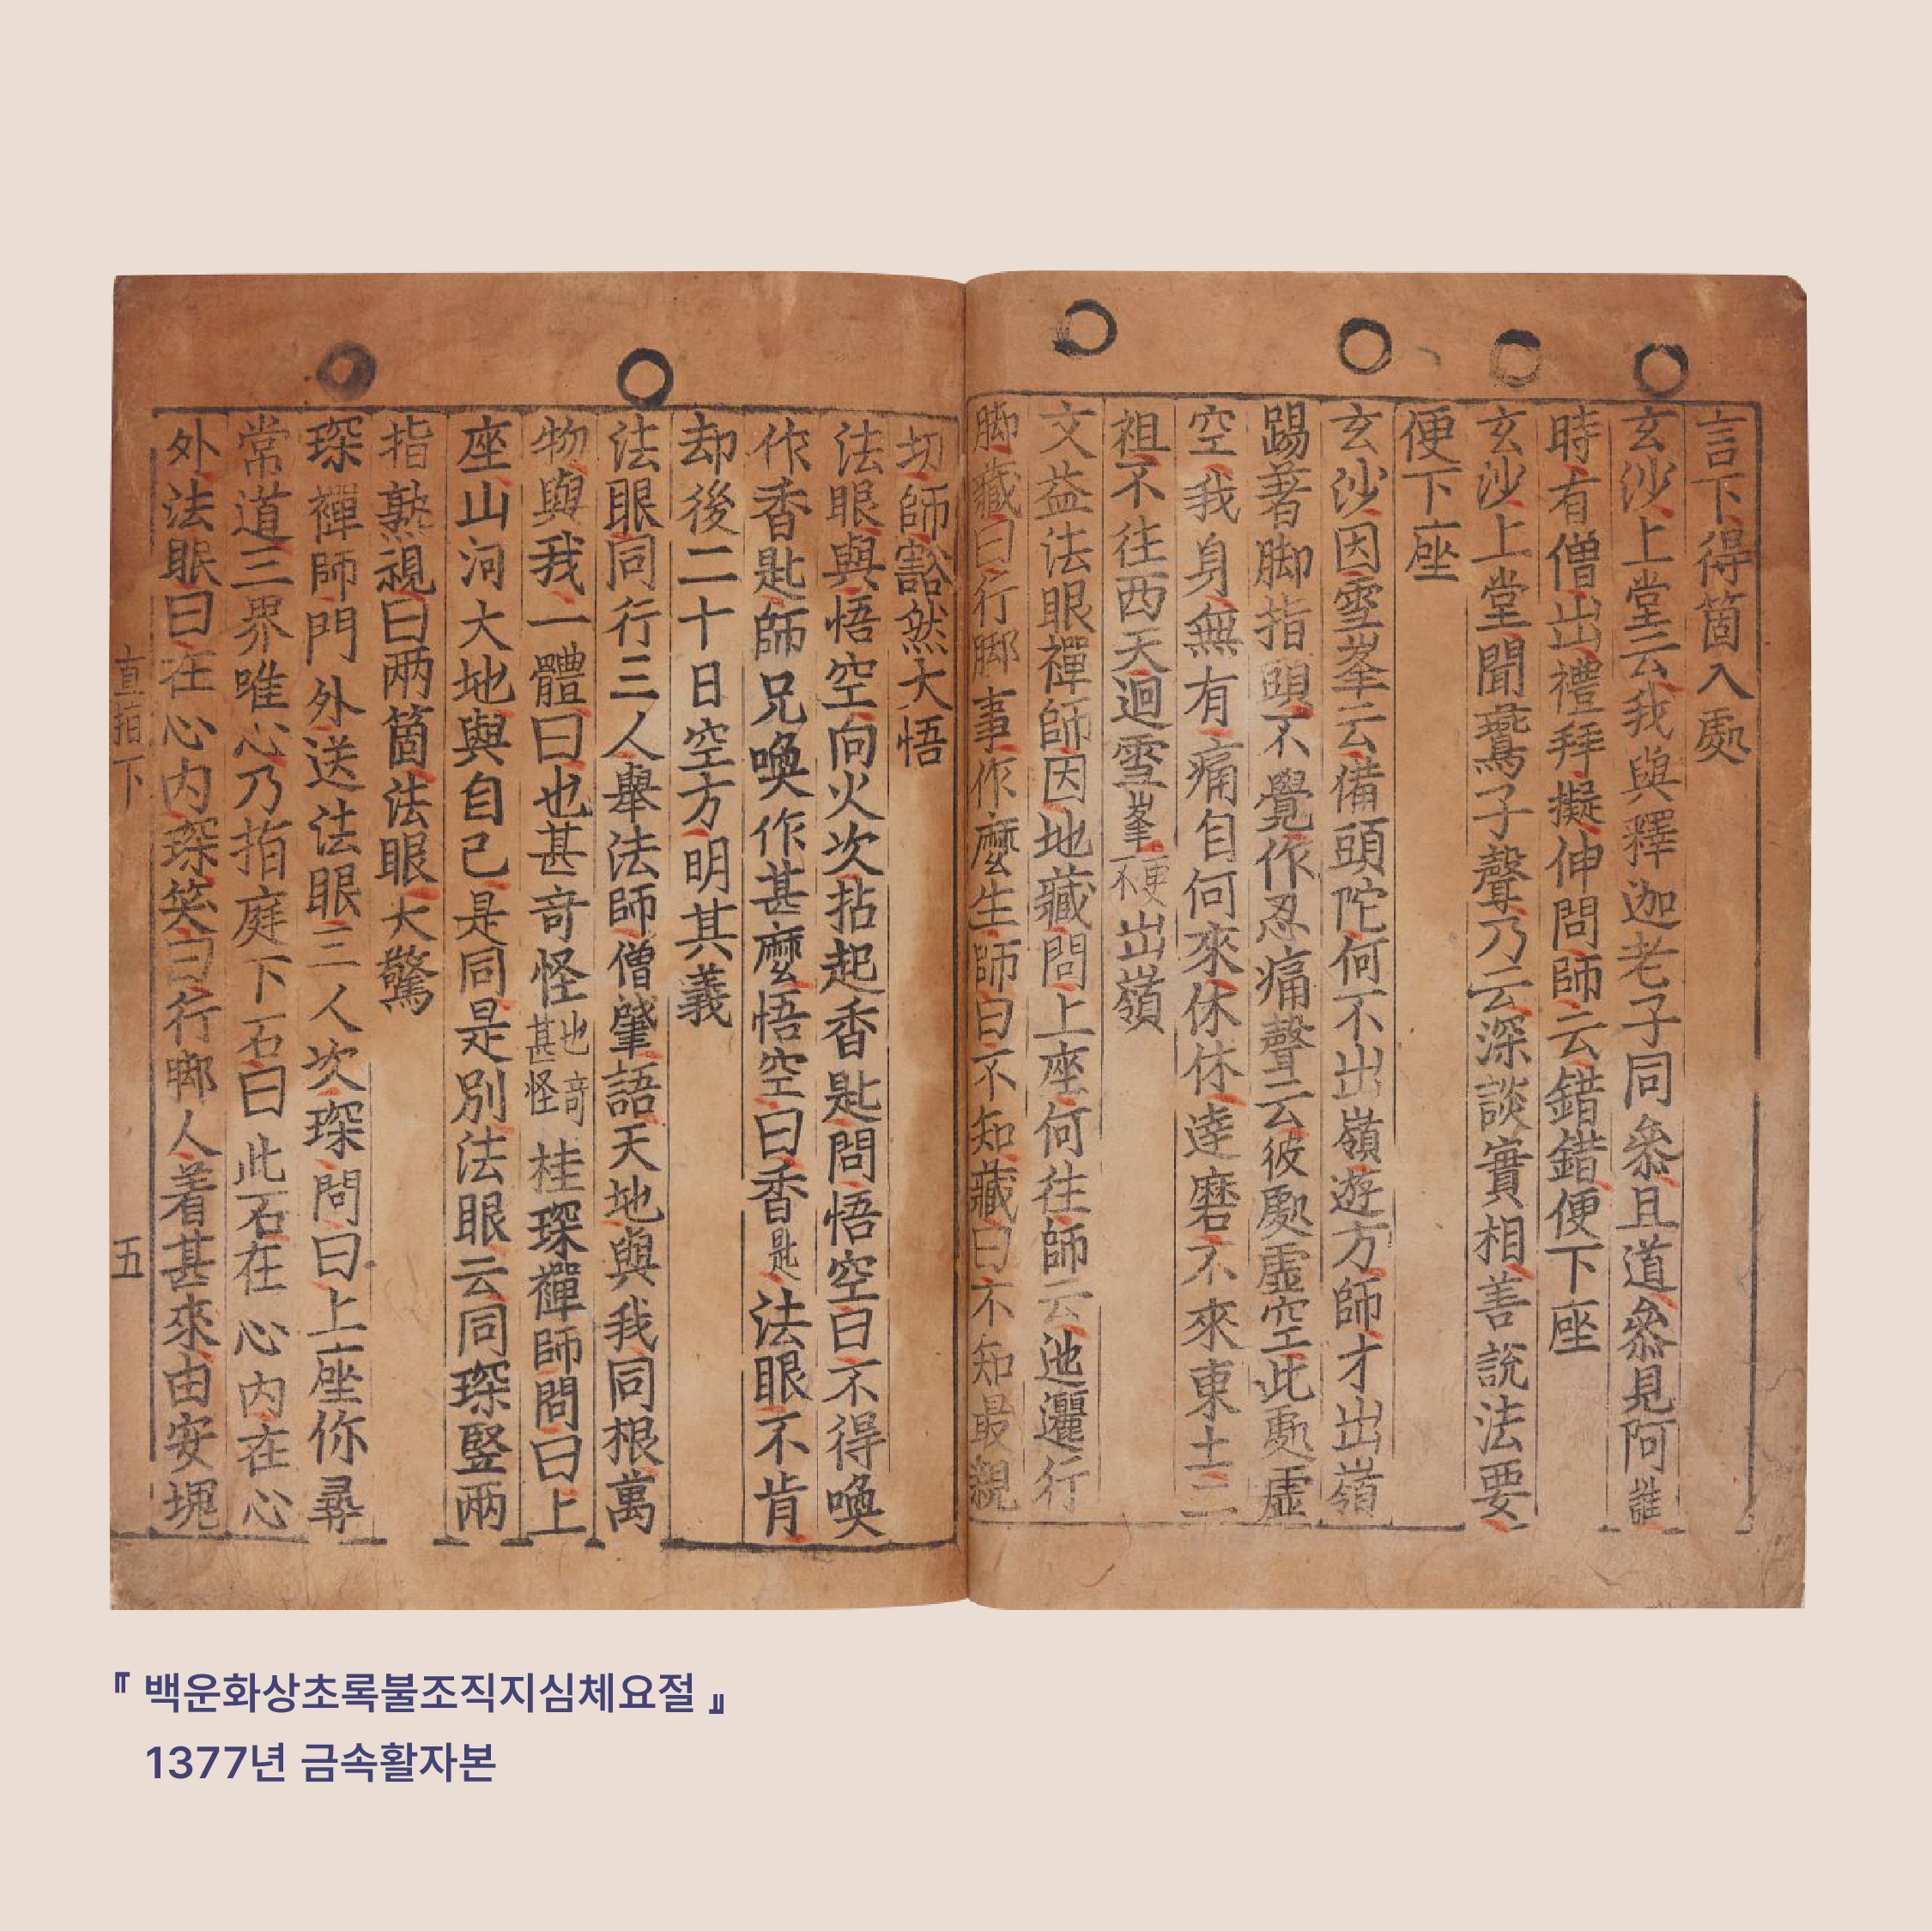 言下得箇入處
玄沙上堂云我與釋迦老子同叅且道叅見阿誰
時有僧出禮拜擬伸問師云錯錯便下座
玄沙上堂聞鷰子聲乃云深談實相善說法要
便下座
玄沙因雪峯云備頭陀何不出嶺遊方師才出嶺
踢著脚指頭不覺作忍痛聲云彼處虛空此處虛
空我身無有痛自何來休休達磨不來東土二
祖不往西天迴雪峯更不出嶺
文益法眼禪師因地藏問上座何往師云迆邐行
脚藏曰行脚事作麼生師曰不知藏曰不知最親
切師豁然大悟
法眼與悟空向火次拈起香匙問悟空曰不得喚
作香匙師兄喚作甚麼悟空曰香匙法眼不肯
却後二十日空方明其義
法眼同行三人舉法師僧肇語天地與我同根萬
物與我一體曰也甚奇怪也奇甚怪桂琛禪師問曰上
座山河大地與自己是同是別法眼云同琛竪兩
指熟視曰两箇法眼大驚
琛禪師門外送法眼三人次琛問曰上座你尋
常道三界唯心乃指庭下石曰此石在心内在心
外法眼曰在心内琛笑曰行脚人着甚來由安塊
直指下 五
『백운화상초록불조직지심체요절』
1377년 금속활자본